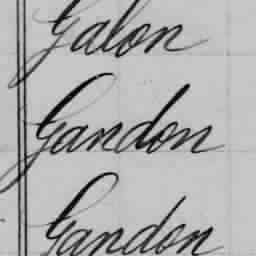 Galon
Gandon
Gandon